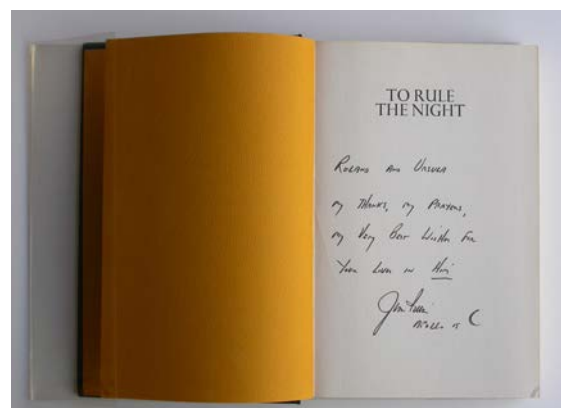 TO RULE
THE NIGHT
Roland and Ursula
my Thanks, my Prayers,
my Very Best Wishes For
Your in Him
Jim Irwin
Apollo 15